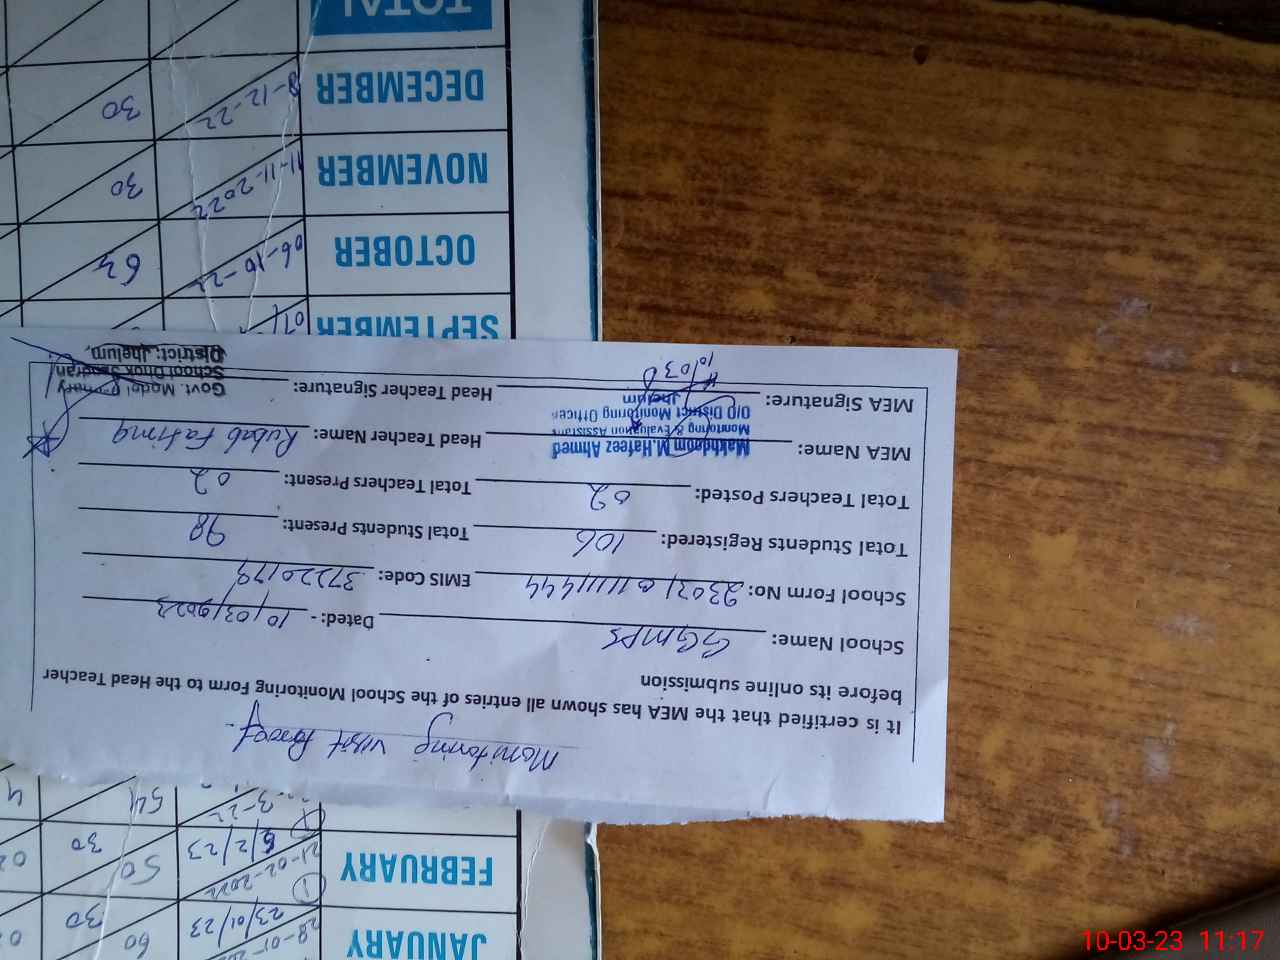 Monitoring visit Proof
It is certified that the MEA has shown all entries of the School Monitoring Form to the Head Teacher
before its online submission
School Name: GGMPS Dated:- 10/03/2023
School Form No: EMIS Code: 37220179
Total Students Registered: 106 Total Students Present: 98
Total Teachers Posted: 02 Total Teachers Present: 02
MEA Name: Makhdoom M.Hafeez Ahmed Head Teacher Name: Rubab Fatima
Monitoring & Evaluation Assistant
O/O District Monitoring Officer
Jhelum
MEA Signature: Head Teacher Signature:
Govt. Model Primary
School Dhok
District: Jhelum,
JANUARY 23/01/23 60 30
FEBRUARY 21-02-2022 50 30
3-22 54
SEPTEMBER
OCTOBER 06-10-22 64
NOVEMBER 11-11-2022 30
DECEMBER 8-12-22 30
TOTAL
10-03-23 11:17